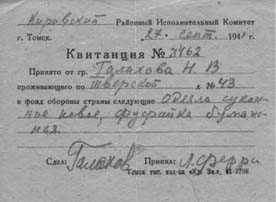 Кировский Районный Исполнительный Комитет
г. Томск. 27 сент. 1941 г.
Квитанция № 3462
Принято от гр. Галахова Н. В
проживающего по Тверской д № 43
в фонд обороны страны следующие Одеяло сукон-
ное новое, фуфайка бумаж-
ная.
Сдал: Галахов Принял: Л. Ферри
Томск тип. изд-ва „Кр. Зн.“ 1-2798